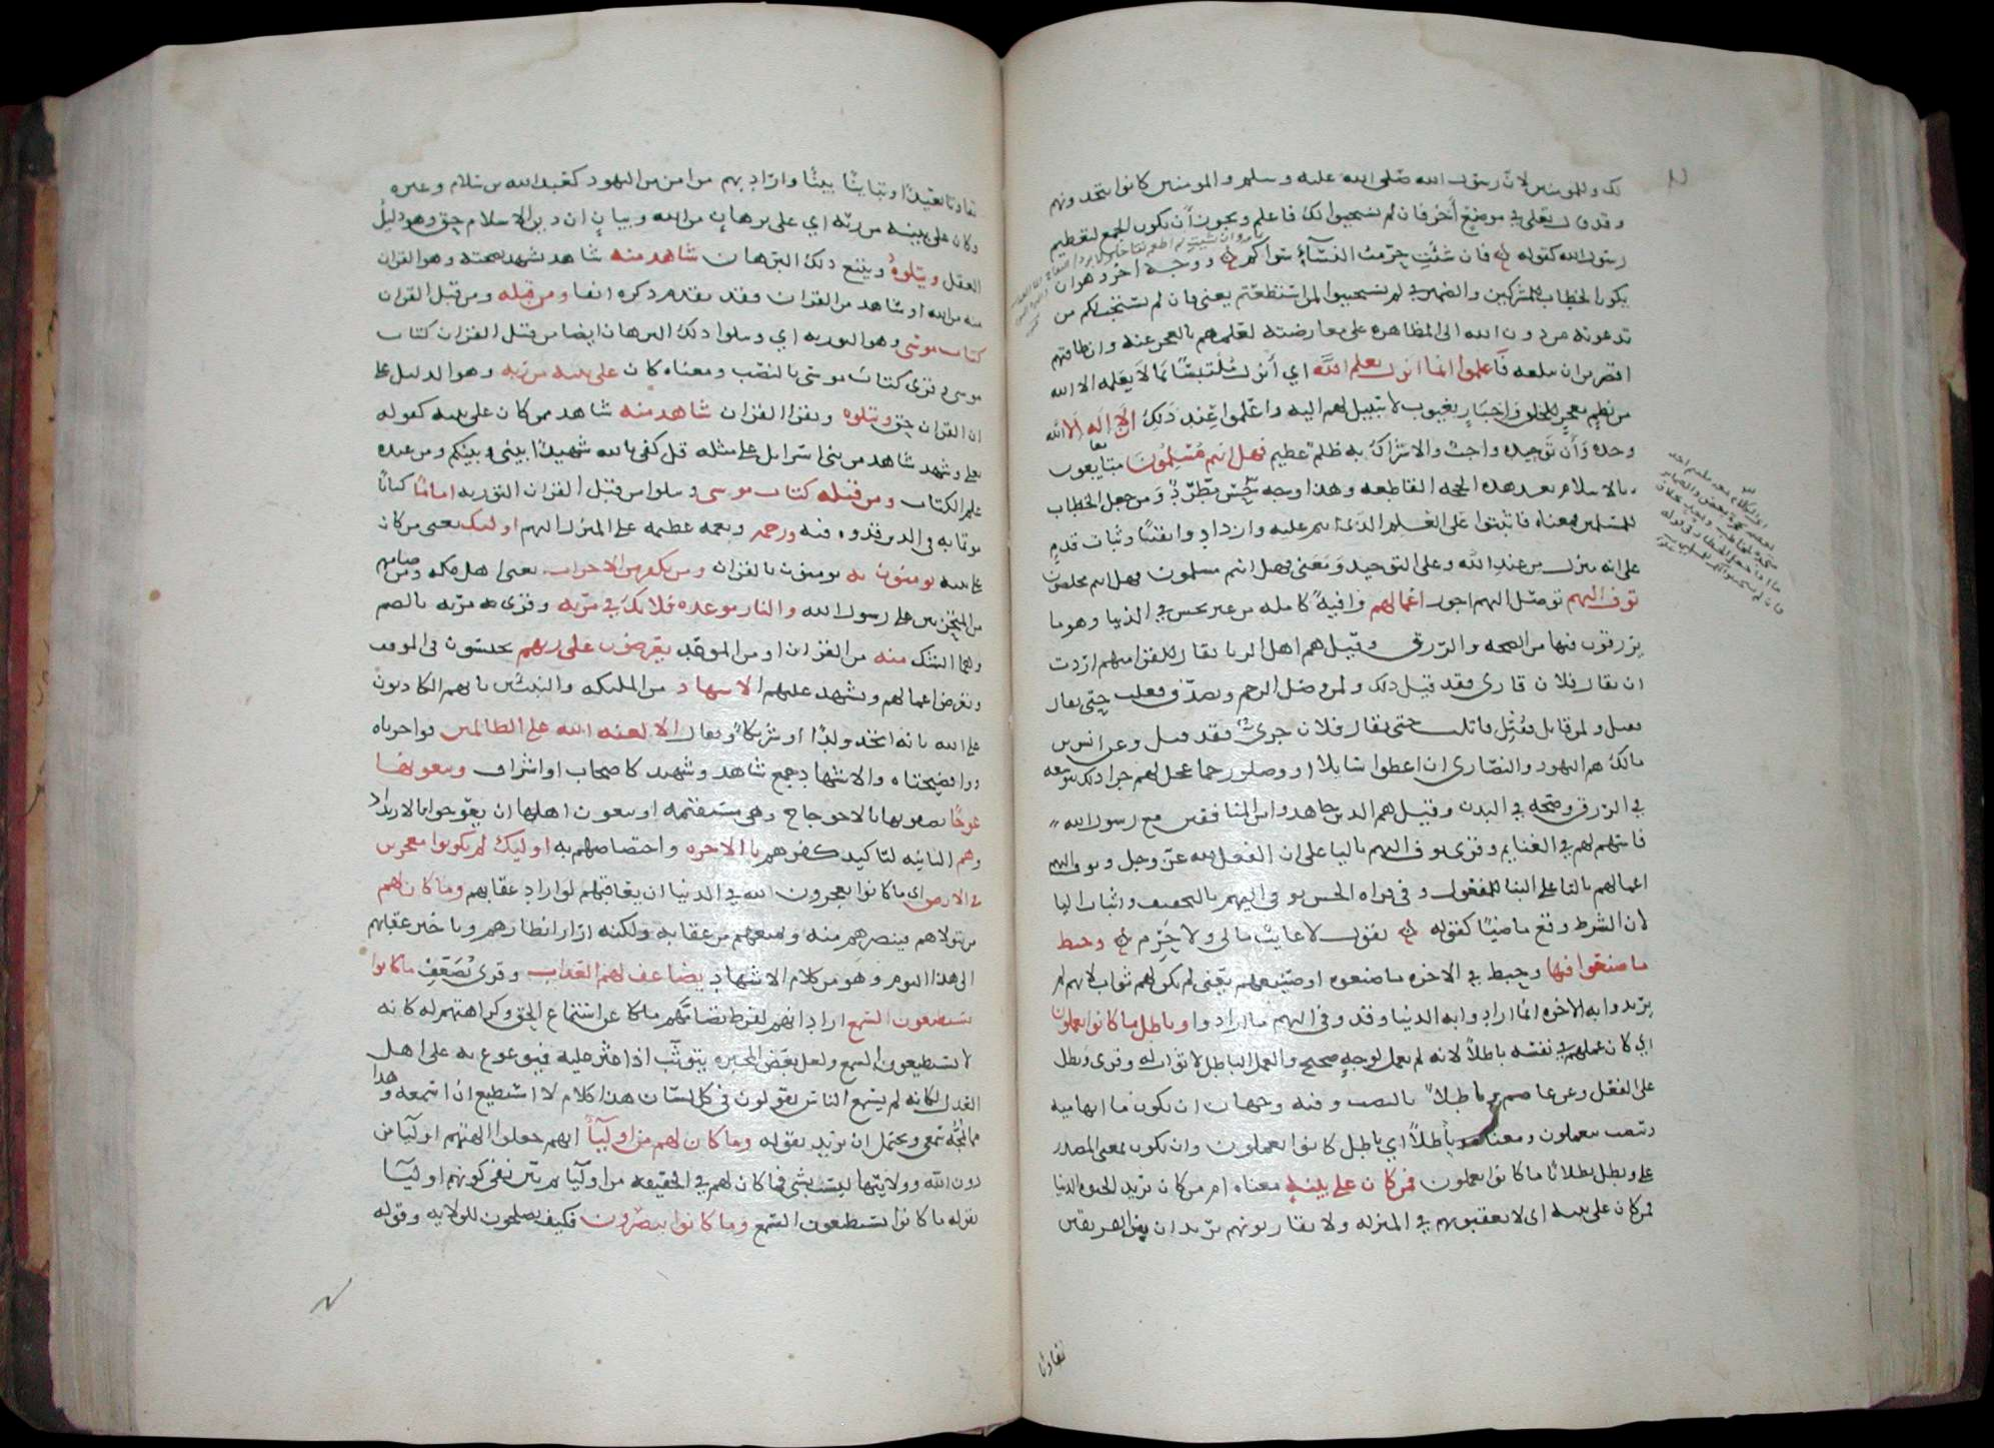 لك وللمومنين لان رسول الله صلى الله عليه وسلم والمومنين كانوا يتحدونهم
وقد قال تعالى في موضع آخر فان لم يستجيبوا لك فاعلم ويجوز أن يكون الجمع لتعظيم
رسول الله كقوله فان شئت حرمت النساء سواكم ووجه اخر وهوان
يكون الخطاب للمشركين والضمير في لم يستجيبوا لمن استطعتم يعني فان لم يستجب لكم من
تدعونه من دون الله الى المظاهرة على معارضته لعلمهم بالعجز عنه وان طاقتهم
اقصر من ان تبلغه فاعلموا انما انزل بعلم الله اي أنزل ملتبسا بما لا يعلمه الا الله
من نظم معجز للخلق واخبار بغيوب لا سبيل لهم اليه واعلموا عند ذلك ان لا اله الا الله
وحده وأن توحيده واجب والاشراك به ظلم عظيم فهل انتم مسلمون مبايعون
بالاسلام بعد هذه الحجه القاطعه وهذا وجه حسن مطرد ومن جعل الخطاب
للمسلمين فمعناه فاثبتوا على العلم الذي انتم عليه وازدادوا يقينا وثبات قدم
على انه منزل من عند الله وعلى التوحيد ومعنى فهل انتم مسلمون فهل انتم مخلصون
نوف اليهم نوصل اليهم اجور اعمالهم وافية كاملة من غير بخس في الدنيا وهو ما
يرزقون فيها من الصحه والرزق وقيل هم اهل الريا يقال للقرا منهم اردت
ان يقال فلان قارى فقد قيل ذلك ولمن وصل الرحم وتصدق فعلت حتى يقال
فقيل ولمن قاتل فقتل قاتلت حتى يقال فلان جرى فقد قيل وعن انس بن
مالك هم اليهود والنصارى ان اعطوا سايلا او وصلوا رحما عجل لهم جزا ذلك بتوسعه
في الرزق وصحه في البدن وقيل هم الذين جاهدوا من المنافقين مع رسول الله
فاسهم لهم في الغنايم وقرى يوف اليهم باليا على ان الفعل لله عز وجل وتوف اليهم
اعمالهم بالتا على البنا للمفعول وفي قراه الحسن نوفي اليهم بالتخفيف واثبات اليا
لان الشرط وقع ماضيا كقوله يقول لا غايب مالي ولا حرم وحبط
ما صنعوا فيها وحبط في الاخره ما صنعوه او صنيعهم يعني لم يكن لهم ثواب لانهم لم
يريدوا به الاخره انما ارادوا به الدنيا وقد وفي اليهم ما ارادوا وباطل ما كانوا يعملون
اي كان عملهم في نفسه باطلا لانه لم يعمل لوجه صحيح والعمل الباطل لا ثواب له وقرى وبطل
على الفعل وعن عاصم وباطلا بالنصب وفيه وجهان ان يكون ما ابهاميه
وتنصب بيعملون ومعناه وباطلا اي باطل كانوا يعملون وان يكون بمعنى المصدر
على وبطل بطلانا ما كانوا يعملون فمن كان على بينه معناه ام من كان يريد الحيوه الدنيا
فمن كان على بينه اى لا يعقبونهم في المنزله ولا يقاربونهم يريد ان بين الفريقين
تفاوتا
تفاوتا بعيدا وتباينا بينا واراد بهم من امن من اليهود كعبد الله بن سلام وغيره
وكان على بينه من ربه اي على برهان من الله وبيان ان دين الاسلام حق وهو دليل
العقل ويتلوه ويتبع ذلك البرهان شاهد منه شاهد يشهد بصحته وهو القران
منه من الله او شاهد من القران فقد تقدم ذكره انفا ومن قبله ومن قبل القران
كتاب موسى وهو التوريه اي ويتلوا ذلك البرهان ايضا من قبل القران كتاب
موسى وقرى كتاب موسى بالنصب ومعناه كان على بينه من ربه وهو الدليل على
ان القران حق ويتلوه ويقرا القران شاهد منه شاهد ممن كان على بينه كقوله
تعلى وشهد شاهد من بني اسرايل على مثله قل كفى بالله شهيدا بيني وبينكم ومن عنده
علم الكتاب ومن قبله كتاب موسى ويتلوا من قبل القران التوريه اماما كتابا
موتما به في الدين قدوه فيه ورحمه ونعمه عظيمه على المنزل اليهم اوليك يعنى من كان
على بينه يومنون به يومنون بالقران ومن يكفر به من الاحزاب يعنى اهل مكه ومن ضامهم
من المتحزبين على رسول الله والنار موعده فلا تك في مريه وقرى مريه بالضم
وهما الشك منه من القران او من الموعد يعرضون على ربهم يحبسون في الموقف
وتعرض اعمالهم ويشهد عليهم الاشهاد من المليكه والنبيين بانهم الكاذبون
على الله بانه اتخذ ولدا او شريكا ويقال الا لعنه الله على الظالمين فواخزياه
ووافضيحتاه والاشهاد جمع شاهد وشهيد كاصحاب او اشراف ويبغونها
عوجا يصفونها بالاعوجاج وهي مستقيمه او يبغون اهلها ان يعوجوا بالارتداد
وهم الثانيه لتاكيد كفرهم بالاخره واختصاصهم به اوليك لم يكونوا معجزين
في الارض اي ما كانوا يعجزون الله في الدنيا ان يعاقبهم لو اراد عقابهم وما كان لهم
من يتولاهم فينصرهم منه ويمنعهم من عقابه ولكنه اراد انظارهم وتاخير عقابهم
الى هذا اليوم وهو من كلام الاشهاد يضاعف لهم العذاب وقرى يضعف ما كانوا
يستطيعون السمع اراد انهم لفرط تصامهم عن استماع الحق وكراهتهم له كانه
لا يستطيعون السمع ولعل بعض المجبره يتوثب اذا عثر عليه فيوعوع به على اهل
العدل كانه لم يسمع الناس يقولون في كل لسان هذا كلام لا استطيع ان اسمعه وهذا
مما يمجه سمعي ويحتمل ان يريد بقوله وما كان لهم من اوليآ انهم جعلوا الهتهم اوليآ من
دون الله وولايتها ليست بشي فما كان لهم في الحقيقه من اوليآ ثم بين نفي كونهم اوليآ
بقوله ما كانوا يستطيعون السمع وما كانوا يبصرون فكيف يصلحون للولايه وقوله